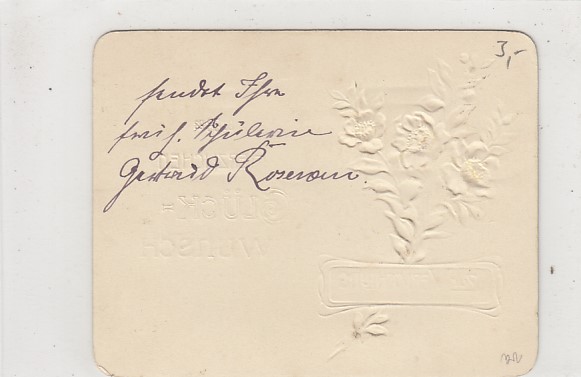 3,-
sendet Ihre
früh. Schülerin
Gertrud
HERZLICHEN
GLÜCK=
WUNSCH